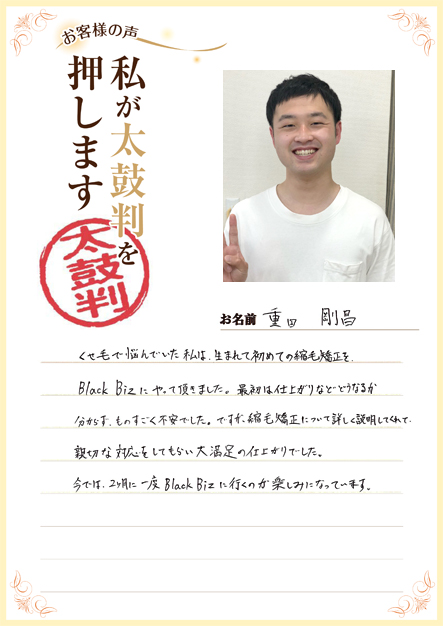 お客様の声
私が太鼓判を
押します
太鼓判
お名前 重田 剛昌
くせ毛で悩んでいた私は、生まれて初めての縮毛矯正を、
Black Bizにやって頂きました。最初は仕上がりなどどうなるか
分からず、ものすごく不安でした。ですが、縮毛矯正について詳しく説明してくれて、
親切な対応をしてもらい大満足の仕上がりでした。
今では、2ヶ月に一度Black Bizに行くのが楽しみになっています。